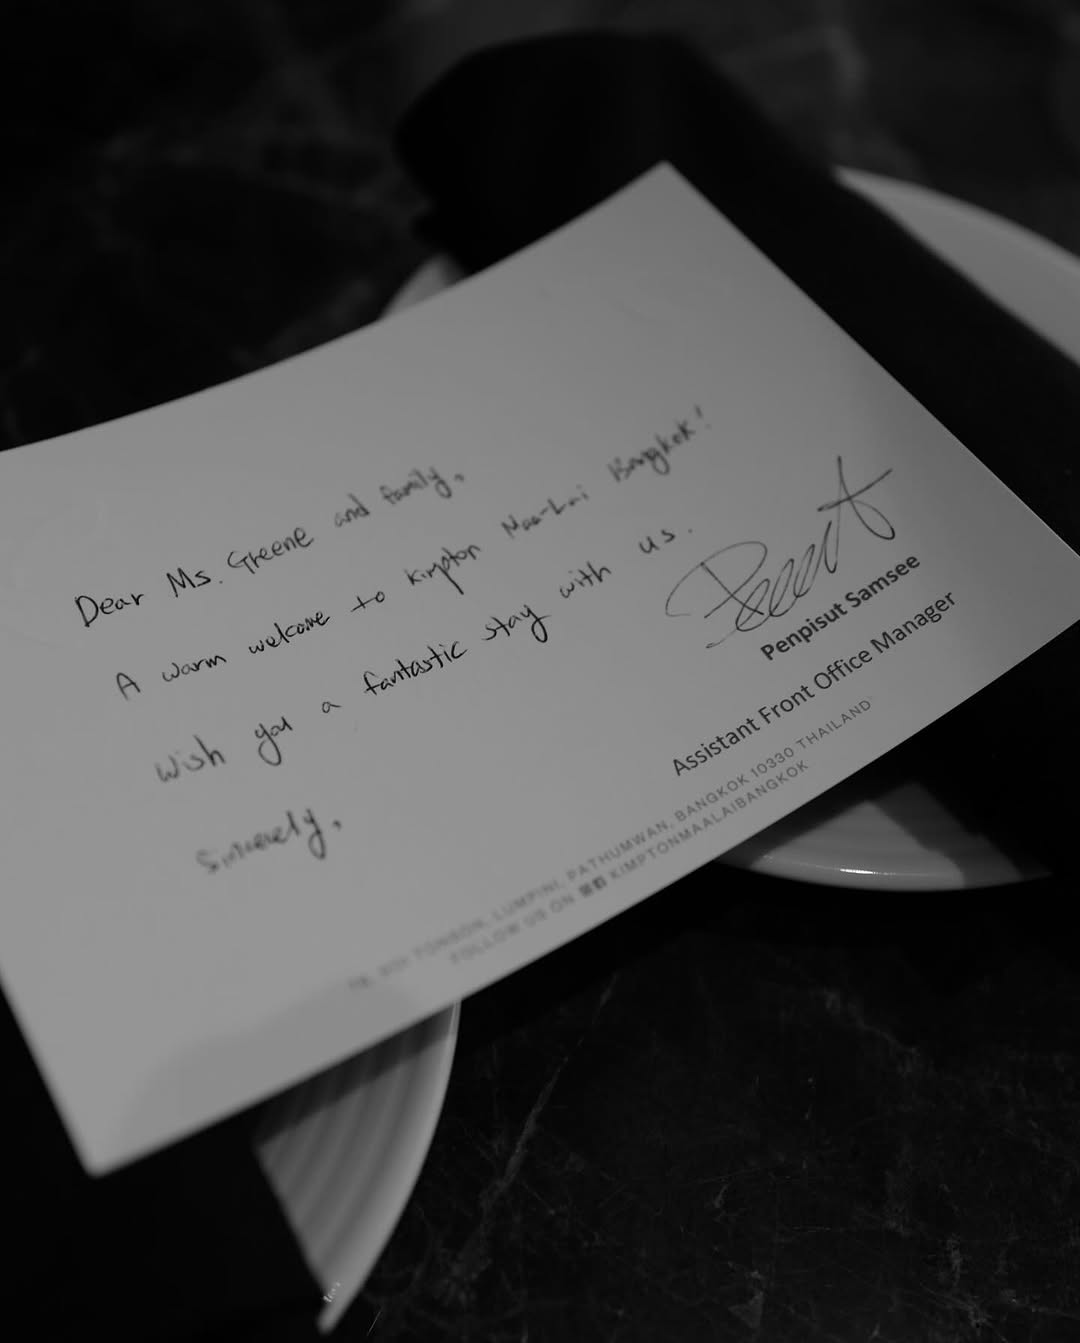 Dear Ms. Greene and family,
A warm welcome to Kimpton Maa-Lai Bangkok!
Wish you a fantastic stay with us.
Sincerely,
Penpisut Samsee
Assistant Front Office Manager
78, SOI TONSON, LUMPINI, PATHUMWAN, BANGKOK 10330 THAILAND
FOLLOW US ON KIMPTONMAALAIBANGKOK